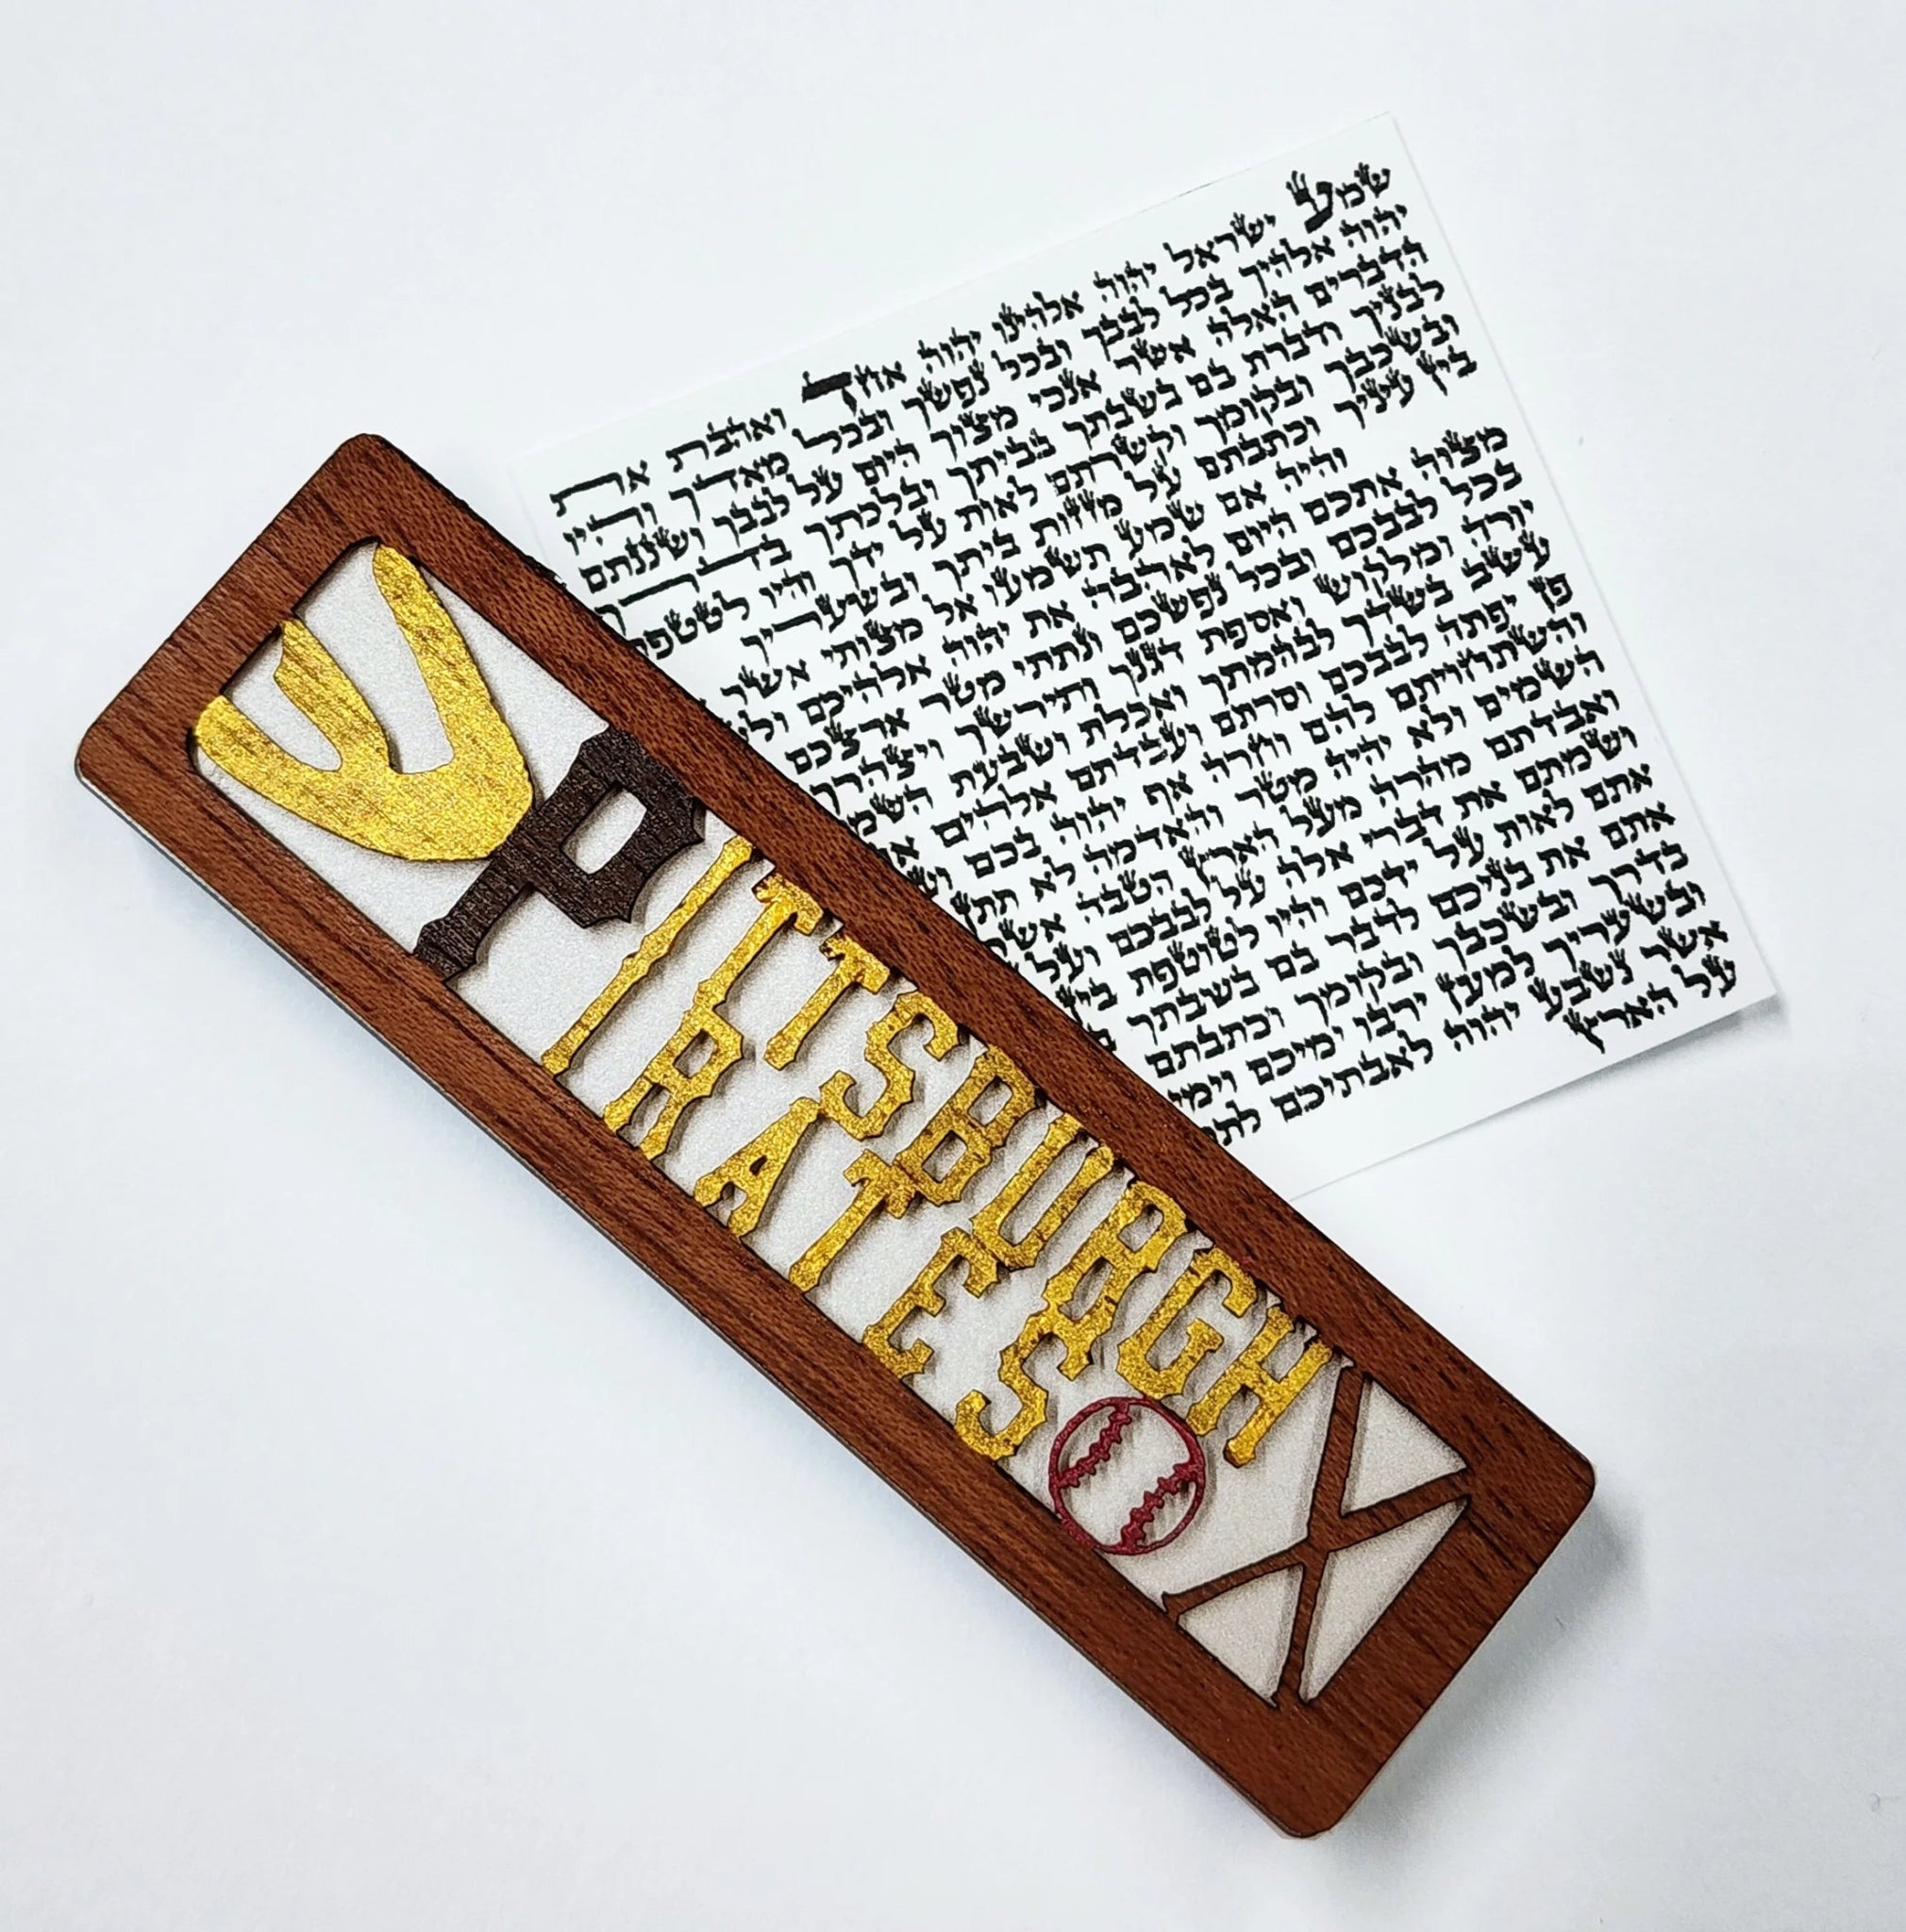 ש
P
PITTSBURGH
PIRATES
שמע ישראל יהוה אלהינו יהוה אחד ואהבת את
יהוה אלהיך בכל לבבך ובכל נפשך ובכל מאדך והיו
הדברים האלה אשר אנכי מצוך היום על לבבך ושננתם
לבניך ודברת בם בשבתך בביתך ובלכתך בדרך
ובשכבך ובקומך וקשרתם לאות על ידך והיו לטטפ
בין עיניך וכתבתם על מזזות ביתך ובשעריך
והיה אם שמע תשמעו אל מצותי אשר
מצוה אתכם היום לאהבה את יהוה אלהיכם
בכל לבבכם ובכל נפשכם ונתתי מטר ארצכם
יורה ומלקוש ואספת דגנך ותירשך ויצהרך
עשב בשדך לבהמתך ואכלת ושבעת
פן יפתה לבבכם וסרתם ועבדתם אלהים
והשתחויתם להם וחרה אף יהוה בכם
השמים ולא יהיה מטר והאדמה לא תתן
ואבדתם מהרה מעל הארץ הטבה אשר
ושמתם את דברי אלה על לבבכם ועל
אתם לאות על ידכם והיו לטוטפת
אתם את בניכם לדבר בם בשבתך
בדרך ובשכבך ובקומך וכתבתם
ובשעריך למען ירבו ימיכם וימי
אשר נשבע יהוה לאבתיכם
על הארץ